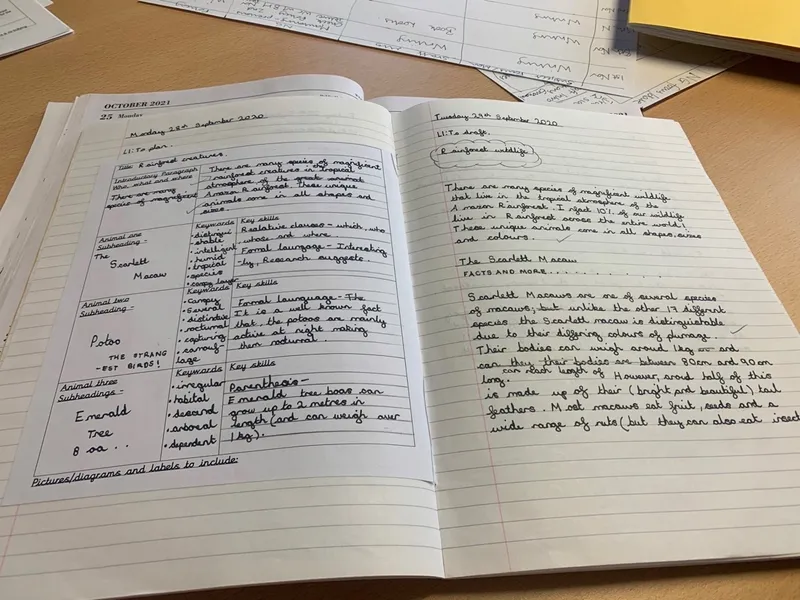 OCTOBER 2021
25 Monday
Monday 28th September 2020
LI: To plan.
Title: Rainforest creatures.
Introductory Paragraph
Who, what and where
There are many
species of magnificent
There are many species of magnificent
rainforest creatures in the tropical
atmosphere of the great animals
Amazon Rainforest. These unique
animals come in all shapes and
sizes
Animal one
Subheading -
The
Scarlett
Macaw
Keywords
• distingui
shable
• intelligent
• humid
• tropical
• species
• canopy layer
Key skills
Realative clauses - which, who
, whose and where
Formal laungage - Interesting
-ly, Research suggests.
Animal two
Subheading -
Potoo
THE STRANG
-EST BIRDS!
Keywords
• Canopy
• Several
• distinctive
• nocturnal
• capturing
• camouf-
lage
Key skills
Formal launguage - The
It is a well known fact
that, the potoos are mainly
active at night making
them nocturnal.
Animal three
Subheadings -
Emerald
Tree
Boa..
Keywords
• irregular
• habital
• descend
• arboreal
• dependent
Key skills
Parenthesis -
Emerald tree boas can
grow up to 2 metres in
length (and can weigh over
1kg).
Pictures/diagrams and labels to include:
Tuesday 29th September 2020
LI: To draft.
Rainforest wildlife
There are many species of magnificent wildlife
that live in the tropical atmosphere of the
Amazon Rainforest. Infact 10% of our wildlife
live in Rainforest across the entire world!
These unique animals come in all shapes, sizes
and colours.
The Scarlett Macaw
FACTS AND MORE..........
Scarlett Macaws are one of several species
of macaws, but unlike the other 17 different
species the Scarlett macaw is distinguishable
due to their differing colours of plumage.
Their bodies can weigh around 1kg and
can they their bodies are between 80cm and 90cm
can reach length of
long. However, around half of this
is made up of their (bright and beautiful) tail
feathers. Most macaws eat fruit, seeds and a
wide range of nuts (but they can also eat insect